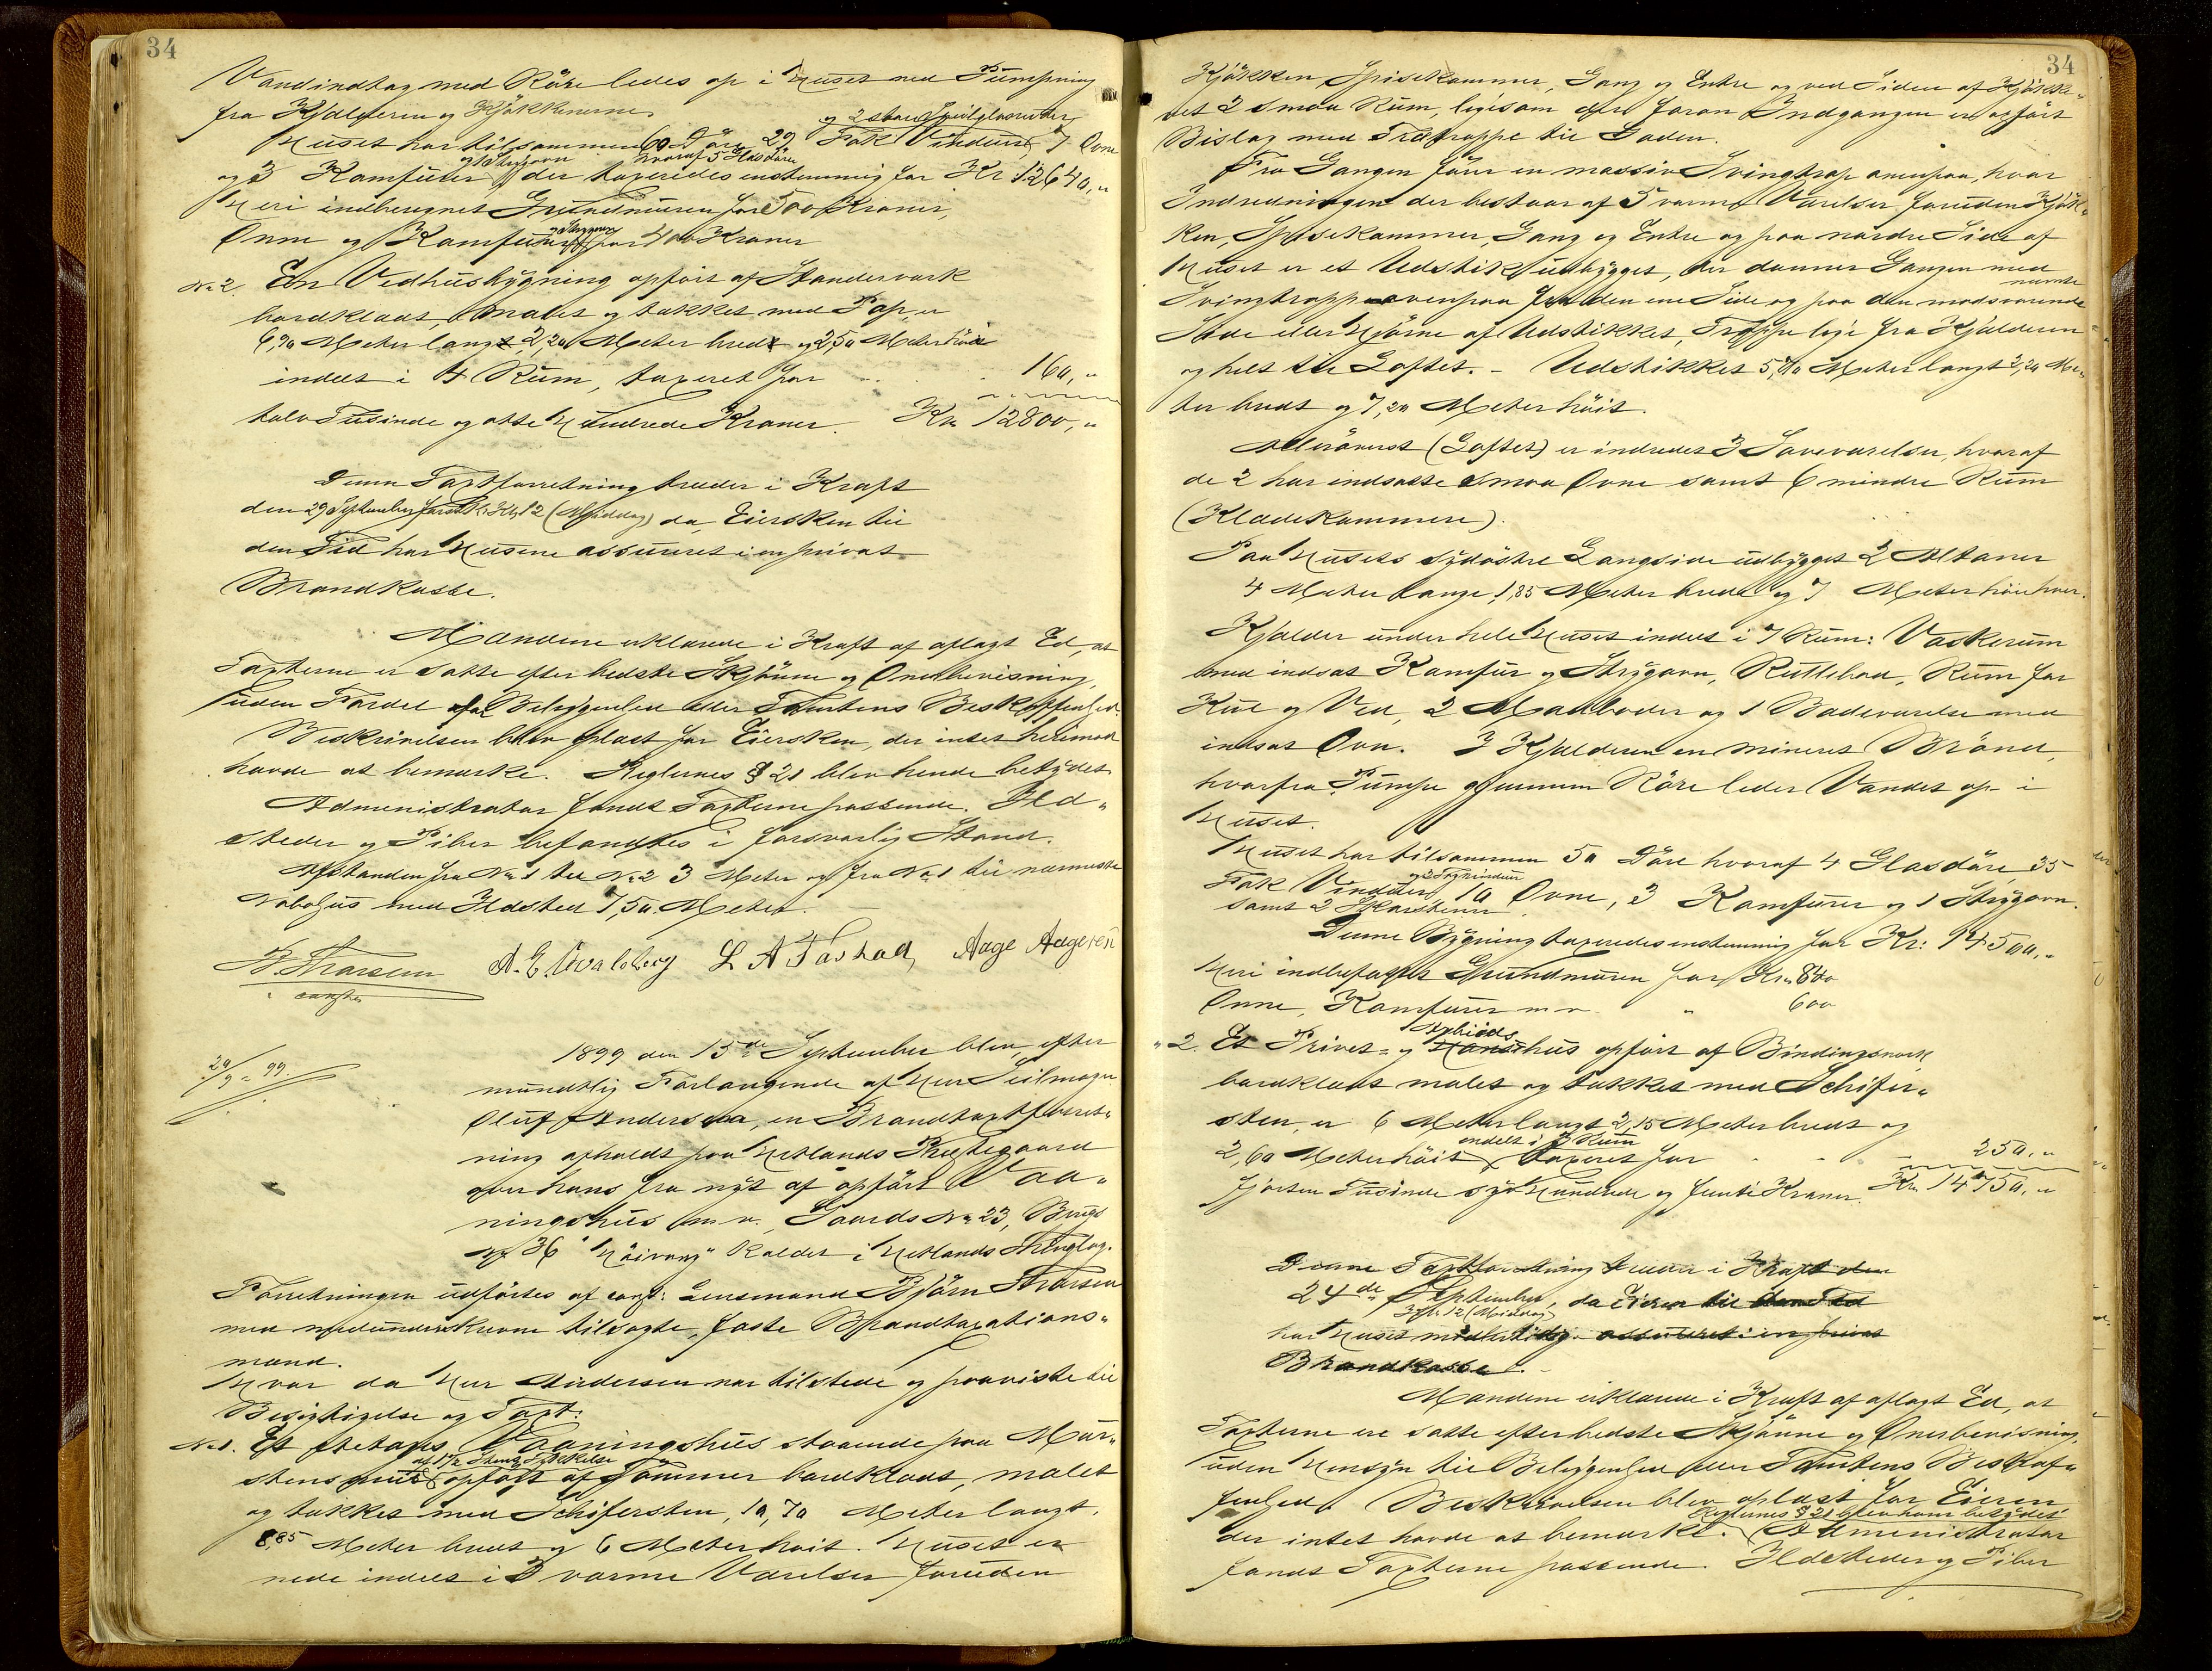 34
Vandindtag med Röre ledes op i Huset med Pumpning
fra Kjelderen og Kjøkkenerne.
og 2 store Speilglasruder
Huset har tilsammen 60 Döre 29 Fak Vinduer, 7 Ovne
og Strygeovn hvoraf 5 Glasdöre
og 3 Komfurer der taxeredes enstemmig for Kr 12640,"
Heri indberegnet Grundmuren for 500 Kroner,
og Strygeovn
Ovne og Komfurer for 400 Kroner
No 2. En Vedhusbygning opført af Standerverk
bordklædt, malet og tækket med Pap, er
6,90 Meter lang, 2,20 Meter bred og 2,50 Meter høi
indelt i 4 Rum, taxeret for . . . 160,"
tolv Tusinde og otte Hundrede Kroner. Kr 12800,"
Denne Taxtforretning træder i Kraft
den 29 September førstk. Kl. 12 (Middag) da Eiersken til
den Tid har Husene assureret i en privat
Brandkasse.
Mændene erklærede i Kraft af aflagt Ed, at
Taxterne er satte efter bedste Skjönne og Overbevisning,
uden Fordel for Beliggenhed eller Tomtens Beskaffenhed.
Beskrivelsen blev oplæst for Eiersken, der intet herimod
havde at bemærke. Reglernes § 21 blev hende betydet.
Administrator fandt Taxterne passende. Ild-
steder og Piber befandtes i forsvarlig Stand.
Afstanden fra No 1 til No 2 3 Meter og fra No 1 til nærmeste
Nabohus med Ildsted 7,50 Meter.
B. Ivarsen A. E. Svalsberg L A Tastad, Aage Aagesen
const.
20/9 - 99.
1899 den 15de September blev, efter
mundtlig Forlangende af Herr Seilmager
Oluf Andersen, en Brandtaxtforret-
ning afholdt paa Hetlands Præstegaard
over hans fra nyt af opført Vaa-
ningshus m. v., Gaards No 23, Brugs
No 36 "Höivang" kaldet i Hetlands Thinglag.
Forretningen udførtes af const: Lensmand Björn Ivarsen
med medunderskrevne tilsagte, faste Brandtaxations-
mænd.
Hvor da Herr Andersen var tilstede og paaviste til
Besigtigelse og Taxt:
No 1. Et etages Vaaningshus staaende paa Mur-
af 1 1/2 Stens Tykkelse
stens opført af Tømmer bordklædt, malet
og tækket med Schifersten, 10,70 Meter langt,
8,85 Meter bredt og 6 Meter høit. Huset er
nede indelt i 3 varme Værelser foruden
34
Kjökken, Spisekammer, Gang og Entre og ved Siden af Kjökke-
net 2 smaa Rum, ligesom der foran Indgangen er opført
Bislag med Trætrappe til Gaden.
Fra Gangen fører en massiv Svingtrap ovenpaa, hvor
Indredningen der bestaar af 5 varme Værelser foruden Kjök-
ken, Spisekammer, Gang og Entre og paa nordre Side af
Huset er et Udstik udbygget, der danner Gangen med
nævnte
Svingtrappe ovenpaa paa den ene Side og paa den modsvarende
Side eller Hjørne af Udstikket, Trappe lige fra Kjelderen
og helt til Loftet. - Udstikket 5,40 Meter langt 2,20 Me-
ter bredt og 7,20 Meter höit.
Allerøverst (Loftet) er indredet 3 Soveværelser, hvoraf
de 2 har indsatte smaa Ovne samt 6 mindre Rum
(Klædekammere).
Paa Husets sydöstre Langside udbygget 2 Altaner
4 Meter lange, 1,85 Meter brede og 7 Meter höie hver.
Kjelder under hele Huset indelt i 7 Rum: Vaskerum
med indsat Komfur og Strygeovn, Rullebod, Rum for
Kul og Ved, 2 Madboder og 1 Badeværelse med
indsat Ovn. I Kjelderen en mineret Brönd,
hvorfra Pumpe gjennem Röre leder Vandet op i
Huset.
Huset har tilsammen 50 Döre hvoraf 4 Glasdöre, 35
og Tagvinduer
Fak Vinduer 10 Ovne, 3 Komfurer og 1 Strygeovn.
samt 2
Denne Bygning taxeredes enstemmig for Kr: 14500,"
Heri indbefattet Grundmuren for Kr 800
Ovne, Komfurer m. v. " 600
" 2. Et Privet- og hus opført af Bindingsverk
bordklædt malet og tækket med Schifer-
sten, er 6 Meter langt 2,15 Meter bredt og
indelt i 3 Rum
2,60 Meter höit, taxeret for - - 250,"
fjorten Tusinde syv Hundrede og femti Kroner. Kr 14750,"
Denne Taxtforretning træder i Kraft den
24de September, da Eieren til den Tid
Kl. 12 (Middag)
har Huset midlertidig assureret i en privat
Brandkasse.
Mændene erklærede i Kraft af aflagt Ed, at
Taxterne ere satte efter bedste Skjönne og Overbevisning,
uden Hensyn til Beliggenhed eller Tomtens Beskaf-
fenhed. Beskrivelsen blev oplæst for Eieren
Reglernes § 21 blev ham betydet
der intet havde at bemærke. Administrator
fandt Taxterne passende. Ildsteder og Piber